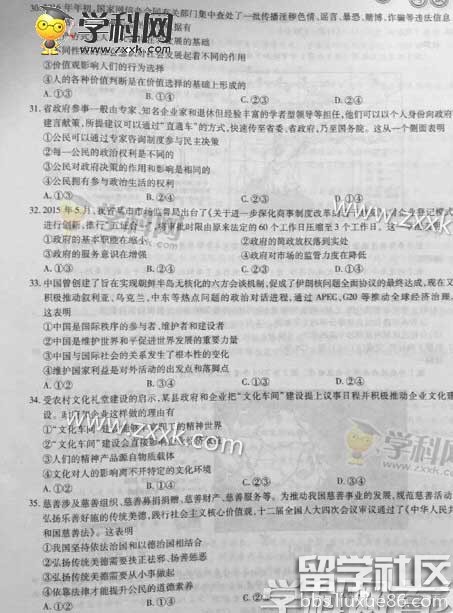 30. 2016 年年初,国家网信办会同有关部门集中查处了一批传播淫秽色情、谣言、暴恐、赌博、诈骗等违法信息
③价值观影响人们的行为选择
④人的各种价值判断是在价值选择的基础上形成的
A. ①③ B. ①④ C. ②③ D. ②④
31. 省政府参事一般由专家、知名企业家和退休但经验丰富的学者型领导等担任,他们可以以个人身份向政府
建言献策,所提建议可以通过“直通车”的方式,快速传至省委、省政府,乃至国务院。这从一个侧面表明
①公民可以通过专家咨询制度参与民主决策
②每一公民的政治权利是不同的
③公民对政府决策的作用和影响是相同的
④公民拥有参与政治生活的权利
A. ①② B. ①④ C. ②③ D. ③④
32. 2015 年 5 月,我省某市市场监督局出台了《关于进一步深化商事制度改革
进行创新,推行“二证合一”,审批时限由原来法定的 60 个工作日压缩至 3 个工作日。这
①政府的基本职能在 ②政府的简政放权落到实处
③政府的服务意识在增强 ④政府对市场的监管力度在降低
A. ①② B. ①④ C. ②③ D. ③④
33. 中国曾创建了旨在实现朝鲜半岛无核化的六方会谈机制,促成了伊朗核问题全面协议的最终达成,现在又
积极推动叙利亚、乌克兰、中东等热点问题的政治对话进程,通过 APEC、G20 等推动全球经济治理
这表明
①中国是国际秩序的参与者、维护者和建设者
②中国是维护世界和平促进世界发展的重要力量
③中国与国际社会的关系发生了根本性的变化
④维护国家利益是对外活动的出发点和落脚点
A. ①② B. ①③ C. ②④ D. ③④
34. 受农村文化礼堂建设的启示,某县政府和企业把“文化车间”建设提上议事日程并积极推动企业文化建
设。政府和企业这样做的理由有
①“文化车间”
②“文化车间”建设会直接影响
③人们的精神产品源自物质载体
④文化对人的影响离不开特定的文化环境
A. ①② B. ①④ C. ②③ D. ③④
35. 慈善涉及慈善组织、慈善募捐捐赠、慈善财产、慈善服务等。为推动我国慈善事业的发展,规范慈善活动
弘扬乐善好施的传统美德,践行社会主义核心价值观,十二届全国人大四次会议审议通过了《中华人民共
和国慈善法》。这表明
①我国坚持依法治国和以德治国相结合
②弘扬传统美德需要扶正祛邪、扬善惩恶
③弘扬传统美德需要从小事做起
④依靠法律才能提升公民的道德素养
A. ①② B. ①③
学科网
www.zxxk.com
学科网
www.zxxk.com
学科网
zxxk.com
留学社区
bbs.liuxue86.com